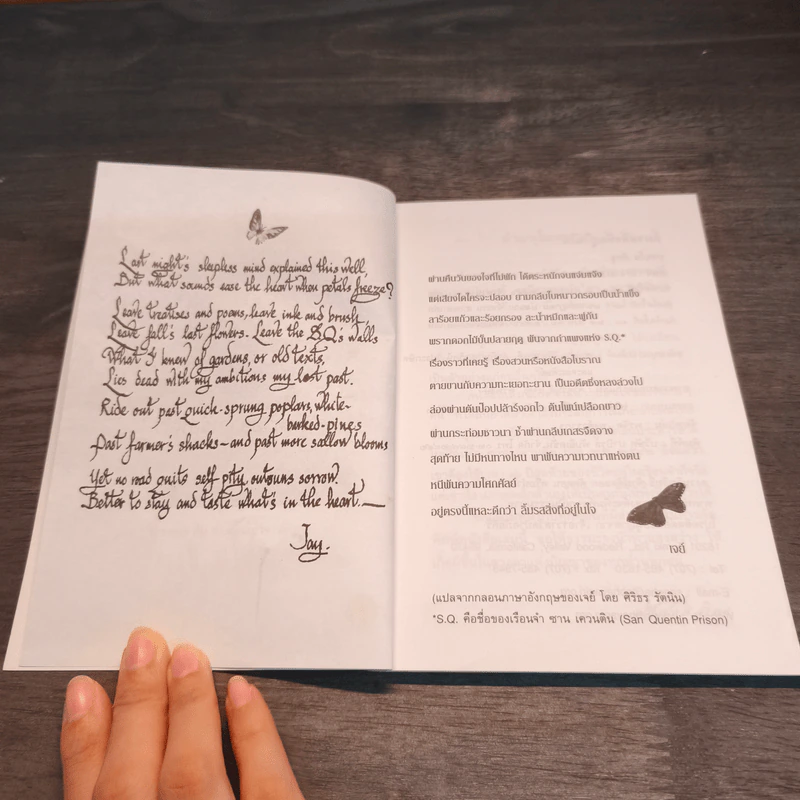 Last night's sleepless mind explained this well,
But what sounds ease the heart when petals freeze?
Leave treatises and poems, leave ink and brush,
Leave fall's last flowers. Leave the S.Q.'s walls
What I knew of gardens, or old texts,
Lies dead with my ambitions my lost past.
Ride out past quick-sprung poplars, white-
barked-pines
Past farmer's shacks—and past more sallow blooms
Yet no road quits self pity, autumns sorrow.
Better to stay and taste what's in the heart.—
Jay.
ผ่านคืนวันของใจที่ไม่พัก ได้ตระหนักจนแจ่มแจ้ง
แต่เสียงใดใครจะปลอบ ยามกลีบใบหนาวกรอบเป็นน้ำแข็ง
ลาร้อยแก้วและร้อยกรอง ละน้ำหมึกและพู่กัน
พรากดอกไม้บั้นปลายฤดู พ้นจากกำแพงแห่ง S.Q.*
เรื่องราวที่เคยรู้ เรื่องสวนหรือหนังสือโบราณ
ตายยากับความทะเยอทะยาน เป็นอดีตซึ่งหลงล่วงไป
ล่องผ่านต้นป๊อปปล้าร์งอกไว ต้นไพน์เปลือกขาว
ผ่านกระท่อมชาวนา ซ้ำผ่านกลีบเกสรจืดจาง
สุดท้าย ไม่มีหนทางไหน พาพ้นความเวทนาแห่งตน
หนีพ้นความโศกศัลย์
อยู่ตรงนี้แหละดีกว่า ลิ้มรสสิ่งที่อยู่ในใจ
เจย์
(แปลจากกลอนภาษาอังกฤษของเจย์ โดย ศิริธร รัตนิน)
*S.Q. คือชื่อของเรือนจำ ซาน เควนติน (San Quentin Prison)